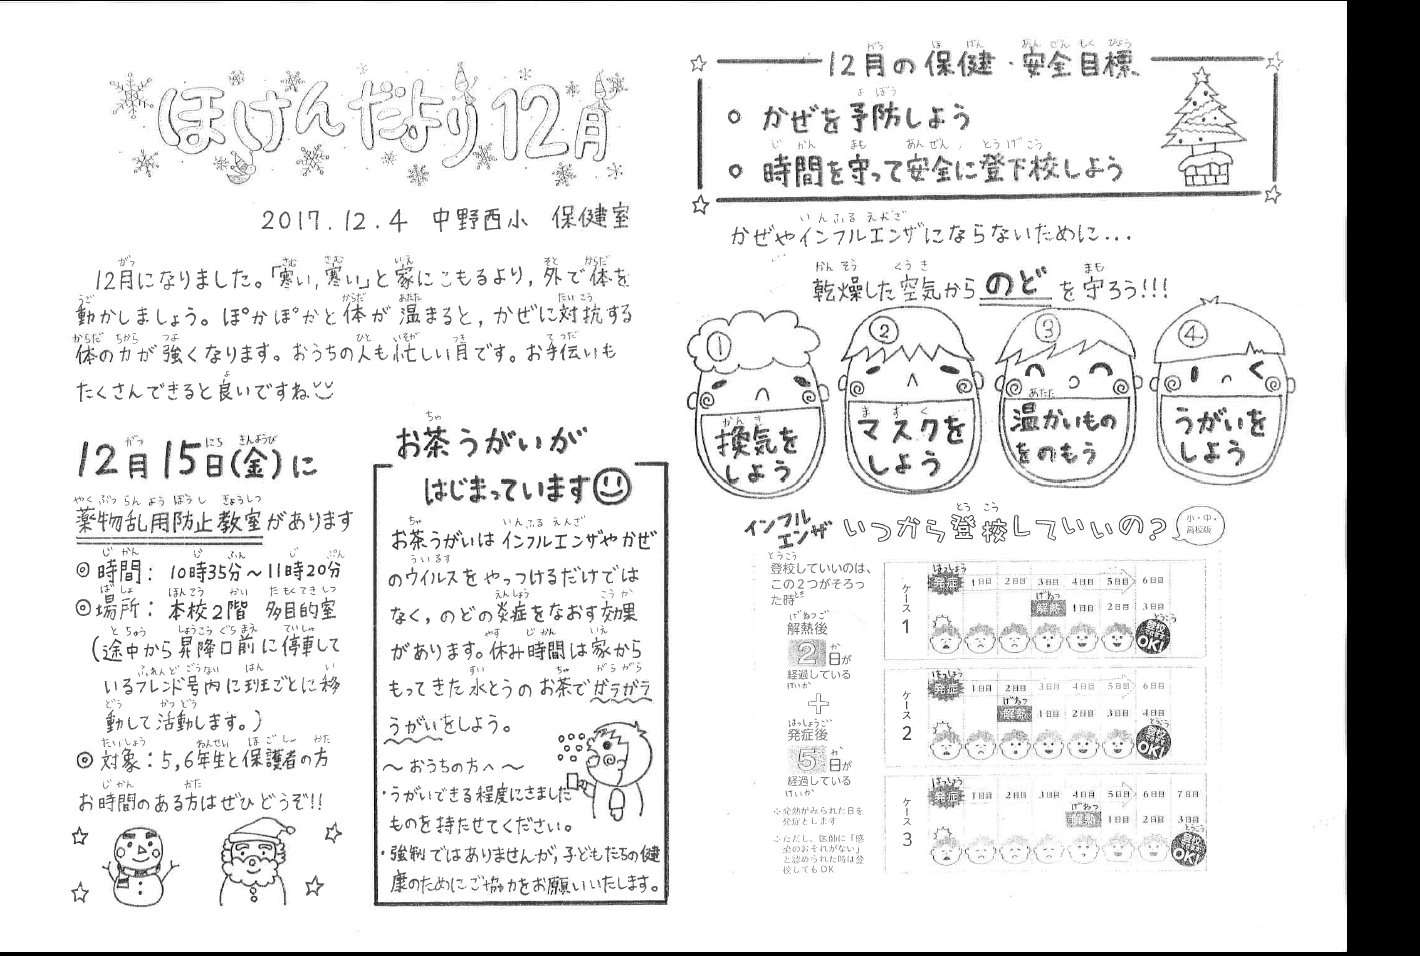 ほけんだより12月
2017.12.4 中野西小 保健室
12月になりました。「寒い,寒い」と家にこもるより,外で体を
動かしましょう。ぽかぽかと体が温まると,かぜに対抗する
体の力が強くなります。おうちの人も忙しい月です。お手伝いも
たくさんできると良いですね
12月15日(金)に
薬物乱用防止教室があります
◎時間：10時35分～11時20分
◎場所：本校2階 多目的室
(途中から昇降口前に停車して
いるフレンド号内に班ごとに移
動して活動します。)
◎対象：5,6年生と保護者の方
お時間のある方はぜひどうぞ!!
お茶うがいが
はじまっています
お茶うがいはインフルエンザやかぜ
のウイルスをやっつけるだけでは
なく,のどの炎症をなおす効果
があります。休み時間は家から
もってきた水とうのお茶でガラガラ
うがいをしよう。
～おうちの方へ～
・うがいできる程度にさました
ものを持たせてください。
・強制ではありませんが,子どもたちの健
康のためにご協力をお願いいたします。
12月の保健・安全目標
○ かぜを予防しよう
○ 時間を守って安全に登下校しよう
かぜやインフルエンザにならないために...
乾燥した空気からのどを守ろう!!!
① 換気を
しよう
② マスクを
しよう
③ 温かいもの
をのもう
④ うがいを
しよう
インフル
エンザ いつから登校していいの?
小・中・
高校版
登校していいのは、
この2つがそろっ
た時
解熱後
2日が
経過している
＋
発症後
5日が
経過している
※発熱がみられた日を
発症とします
※ただし、医師に「感
染のおそれがない」
と認められた時は登
校してもOK
ケース1
発症 1日目 2日目 3日目 4日目 5日目 6日目
解熱 1日目 2日目 3日目
登校OK!
ケース2
発症 1日目 2日目 3日目 4日目 5日目 6日目
解熱 1日目 2日目 3日目 4日目
登校OK!
ケース3
発症 1日目 2日目 3日目 4日目 5日目 6日目 7日目
解熱 1日目 2日目 3日目
登校OK!